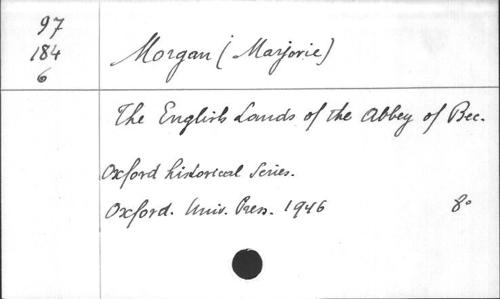 97
184
6
Morgan (Marjorie)
The English Lands of the Abbey of Bec.
Oxford historical Series.
Oxford. Univ. Press. 1946 8°